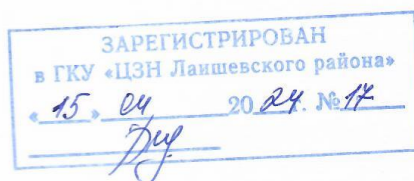 ЗАРЕГИСТРИРОВАН
в ГКУ «ЦЗН Лаишевского района»
«15» 04 2024. № 17